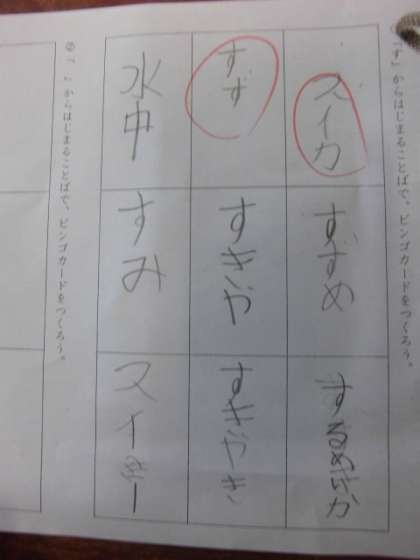 「す」からはじまることばで、ビンゴカードをつくろう。
スイカ
すずめ
すずか
すきや
すきやき
水中
すみ
②「　」からはじまることばで、ビンゴカードをつくろう。